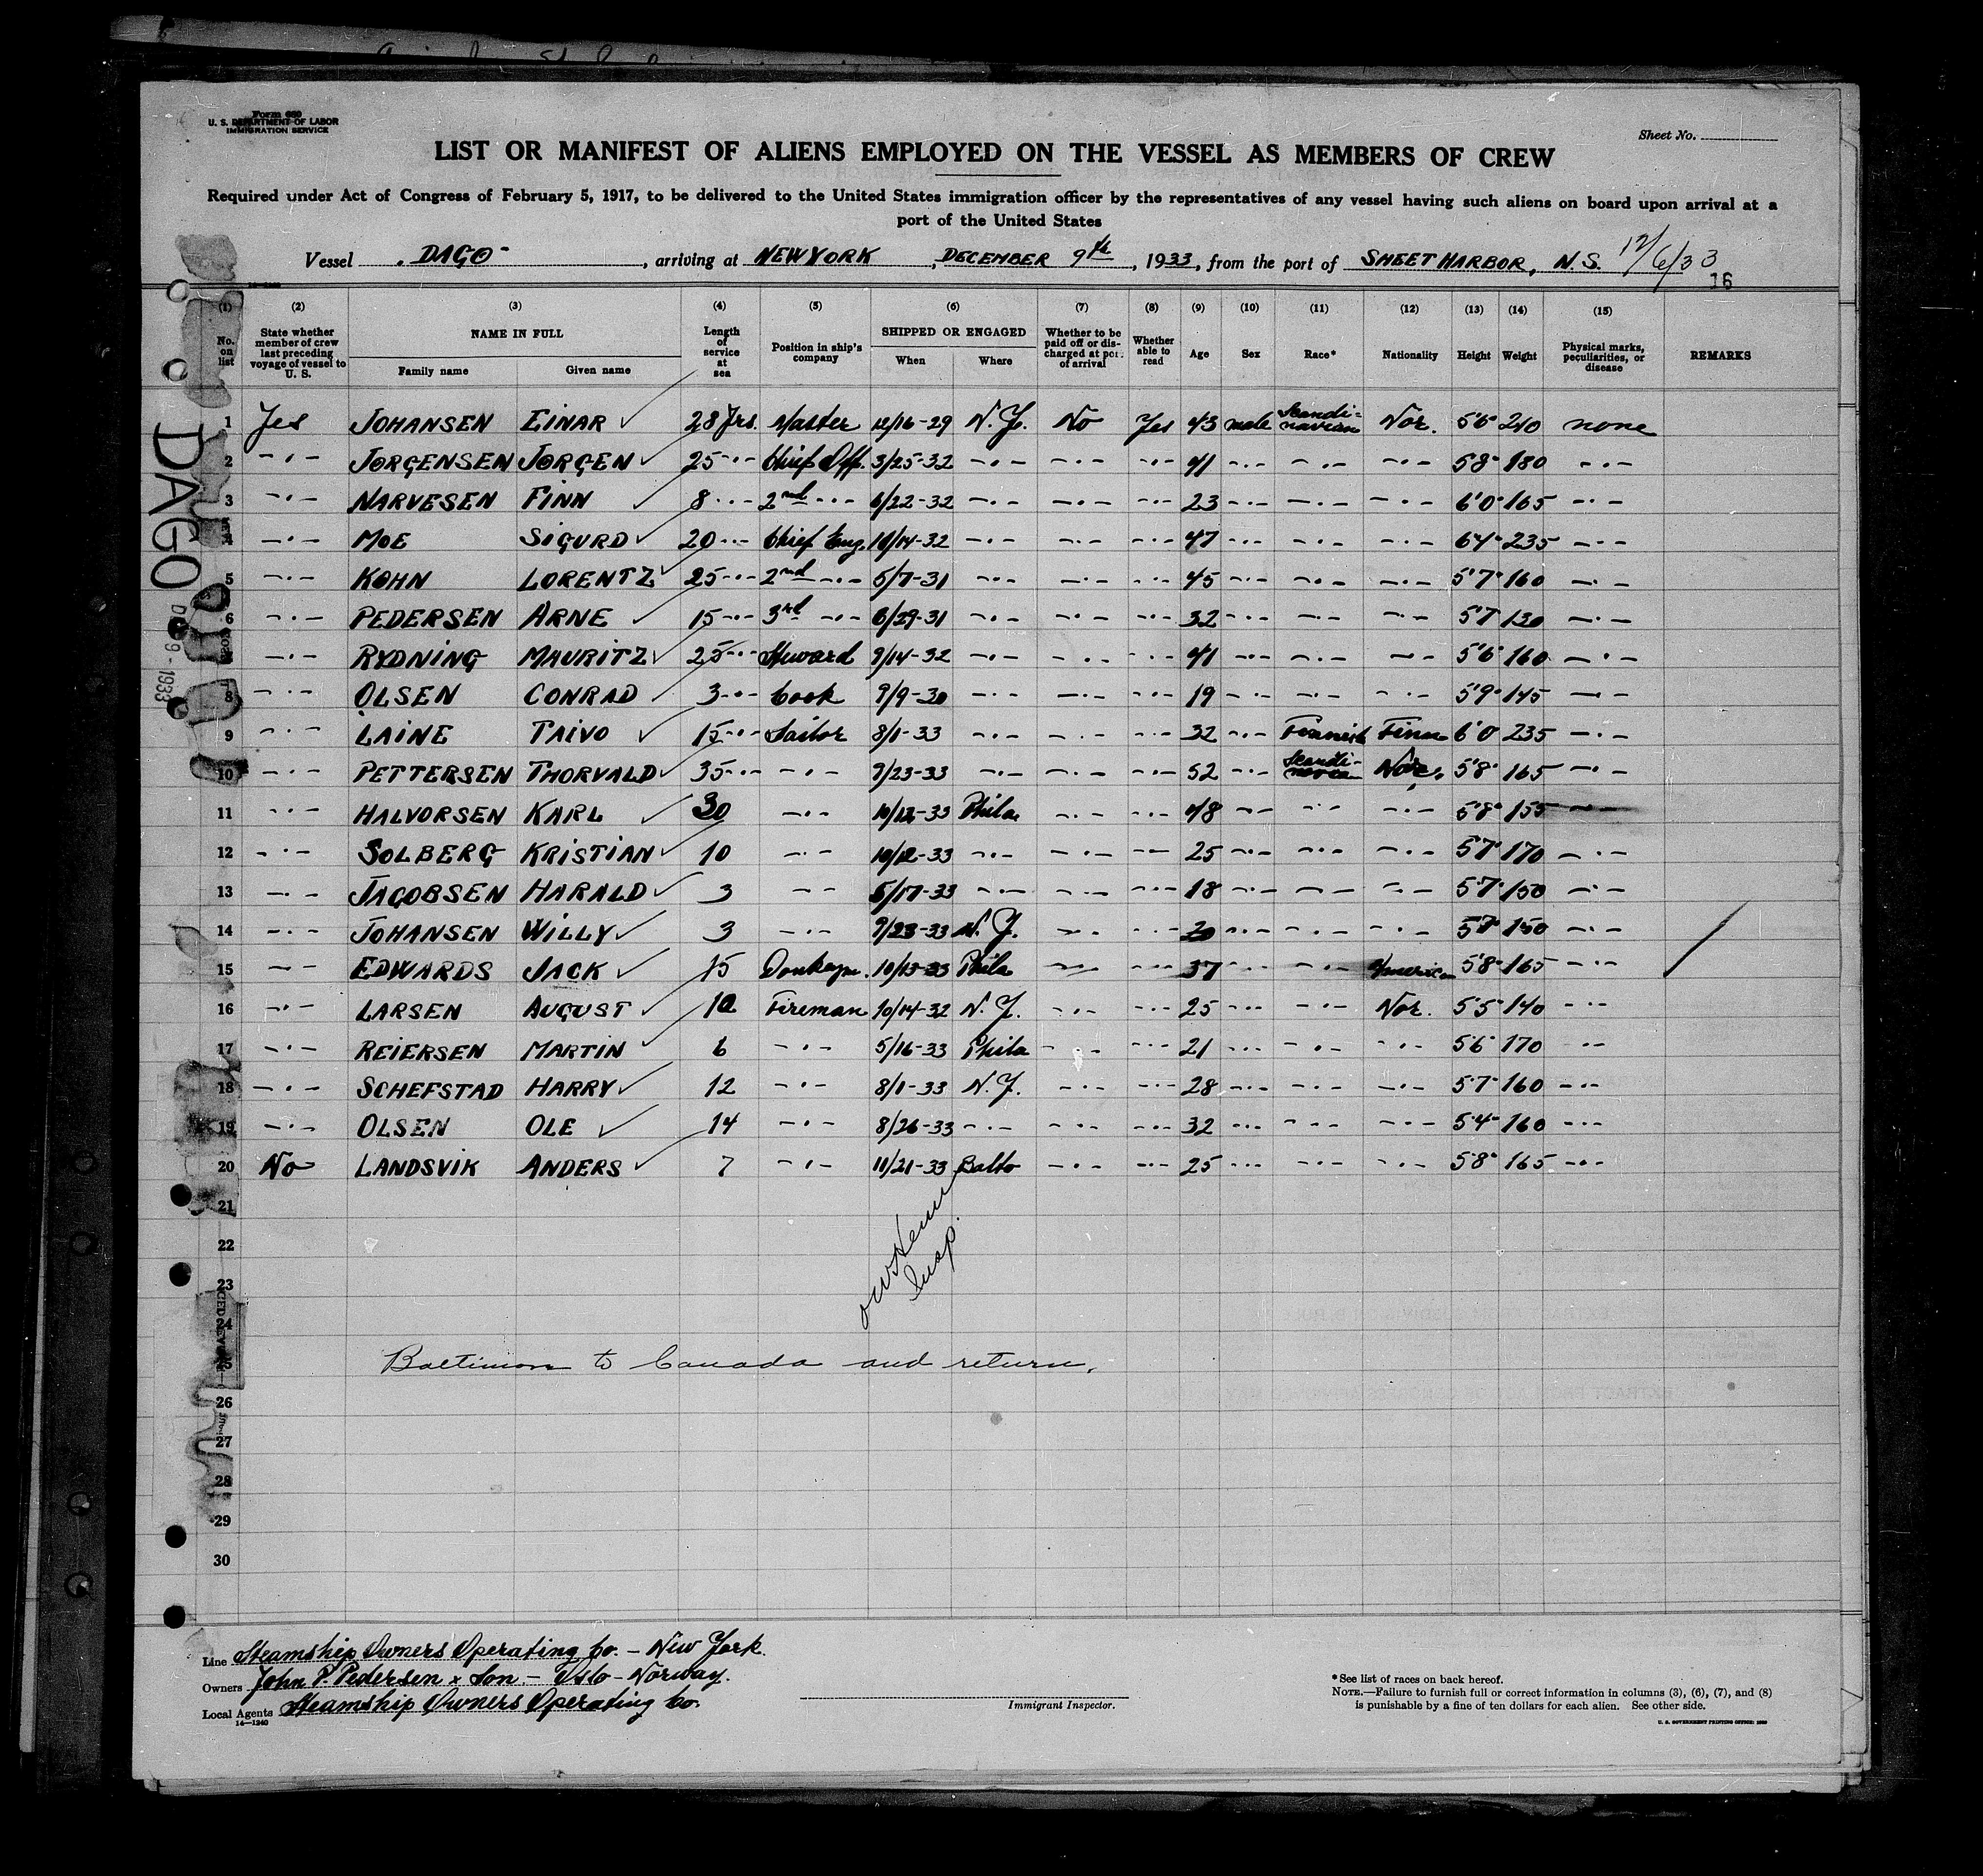 Form 680
U. S. DEPARTMENT OF LABOR
IMMIGRATION SERVICE
Sheet No.
LIST OR MANIFEST OF ALIENS EMPLOYED ON THE VESSEL AS MEMBERS OF CREW
Required under Act of Congress of February 5, 1917, to be delivered to the United States immigration officer by the representatives of any vessel having such aliens on board upon arrival at a
port of the United States
Vessel DAGO, arriving at NEW YORK, DECEMBER 9th, 1933, from the port of SHEET HARBOR, N.S. 12/6/33
16
(1) (2) (3) (4) (5) (6) (7) (8) (9) (10) (11) (12) (13) (14) (15)
No. on list State whether member of crew last preceding voyage of vessel to U. S. NAME IN FULL Length of service at sea Position in ship's company SHIPPED OR ENGAGED Whether to be paid off or discharged at port of arrival Whether able to read Age Sex Race* Nationality Height Weight Physical marks, peculiarities, or disease REMARKS
Family name Given name When Where
1 Yes JOHANSEN EINAR ✓ 28 Yrs. Master 12/16-29 N.Y. No Yes 43 male Scandi-navian Nor. 5'6" 240 none
2 -·- JORGENSEN JORGEN ✓ 25 -·- Chief Off. 3/25-32 -·- -·- -·- 41 -·- -·- -·- 5'8" 180 -·-
3 -·- NARVESEN FINN ✓ 8 -·- 2nd -·- 6/22-32 -·- -·- -·- 23 -·- -·- -·- 6'0" 165 -·-
4 -·- MOE SIGURD ✓ 20 -·- Chief Eng. 10/14-32 -·- -·- -·- 47 -·- -·- -·- 6'4" 235 -·-
5 -·- KOHN LORENTZ ✓ 25 -·- 2nd -·- 5/7-31 -·- -·- -·- 45 -·- -·- -·- 5'7" 160 -·-
6 -·- PEDERSEN ARNE ✓ 15 -·- 3rd -·- 6/29-31 -·- -·- -·- 32 -·- -·- -·- 5'7 130 -·-
7 -·- RYDNING MAURITZ ✓ 25 -·- Steward 9/14-32 -·- -·- -·- 41 -·- -·- -·- 5'6" 160 -·-
8 -·- OLSEN CONRAD ✓ 3 -·- Cook 9/9-30 -·- -·- -·- 19 -·- -·- -·- 5'9" 145 -·-
9 -·- LAINE TAIVO ✓ 15 -·- Sailor 8/1-33 -·- -·- -·- 32 -·- Finnish Finn 6'0 235 -·-
10 -·- PETTERSEN THORVALD ✓ 35 -·- -·- 9/23-33 -·- -·- -·- 52 -·- Scandi-navian Nor. 5'8" 165 -·-
11 -·- HALVORSEN KARL ✓ 30 -·- 10/12-33 Phila. -·- -·- 48 -·- -·- -·- 5'8" 155 -·-
12 -·- SOLBERG KRISTIAN ✓ 10 -·- 10/12-33 -·- -·- -·- 25 -·- -·- -·- 5'7" 170 -·-
13 -·- JACOBSEN HARALD ✓ 3 -·- 5/17-33 -·- -·- -·- 18 -·- -·- -·- 5'7" 150 -·-
14 -·- JOHANSEN WILLY ✓ 3 -·- 9/23-33 N.Y. -·- -·- 20 -·- -·- -·- 5'7" 150 -·-
15 -·- EDWARDS JACK ✓ 15 Donkeym. 10/13-33 Phila -·- -·- 37 -·- -·- American 5'8" 165 -·-
16 -·- LARSEN AUGUST ✓ 10 Fireman 10/14-32 N.Y. -·- -·- 25 -·- -·- Nor. 5'5" 140 -·-
17 -·- REIERSEN MARTIN ✓ 6 -·- 5/16-33 Phila -·- -·- 21 -·- -·- -·- 5'6" 170 -·-
18 -·- SCHEFSTAD HARRY ✓ 12 -·- 8/1-33 N.Y. -·- -·- 28 -·- -·- -·- 5'7" 160 -·-
19 -·- OLSEN OLE ✓ 14 -·- 8/26-33 -·- -·- -·- 32 -·- -·- -·- 5'4" 160 -·-
20 No LANDSVIK ANDERS ✓ 7 -·- 11/21-33 Balto -·- -·- 25 -·- -·- -·- 5'8" 165 -·-
21
22
23
24
25
26
27
28
29
30
Insp.
Baltimore to Canada and return.
DAGO
DEC 9 - 1933
Line Steamship Owners Operating Co. - New York.
Owners John P. Pedersen & Son - Oslo - Norway.
Local Agents Steamship Owners Operating Co.
14—1240
Immigrant Inspector.
*See list of races on back hereof.
NOTE.—Failure to furnish full or correct information in columns (3), (6), (7), and (8)
is punishable by a fine of ten dollars for each alien. See other side.
U. S. GOVERNMENT PRINTING OFFICE